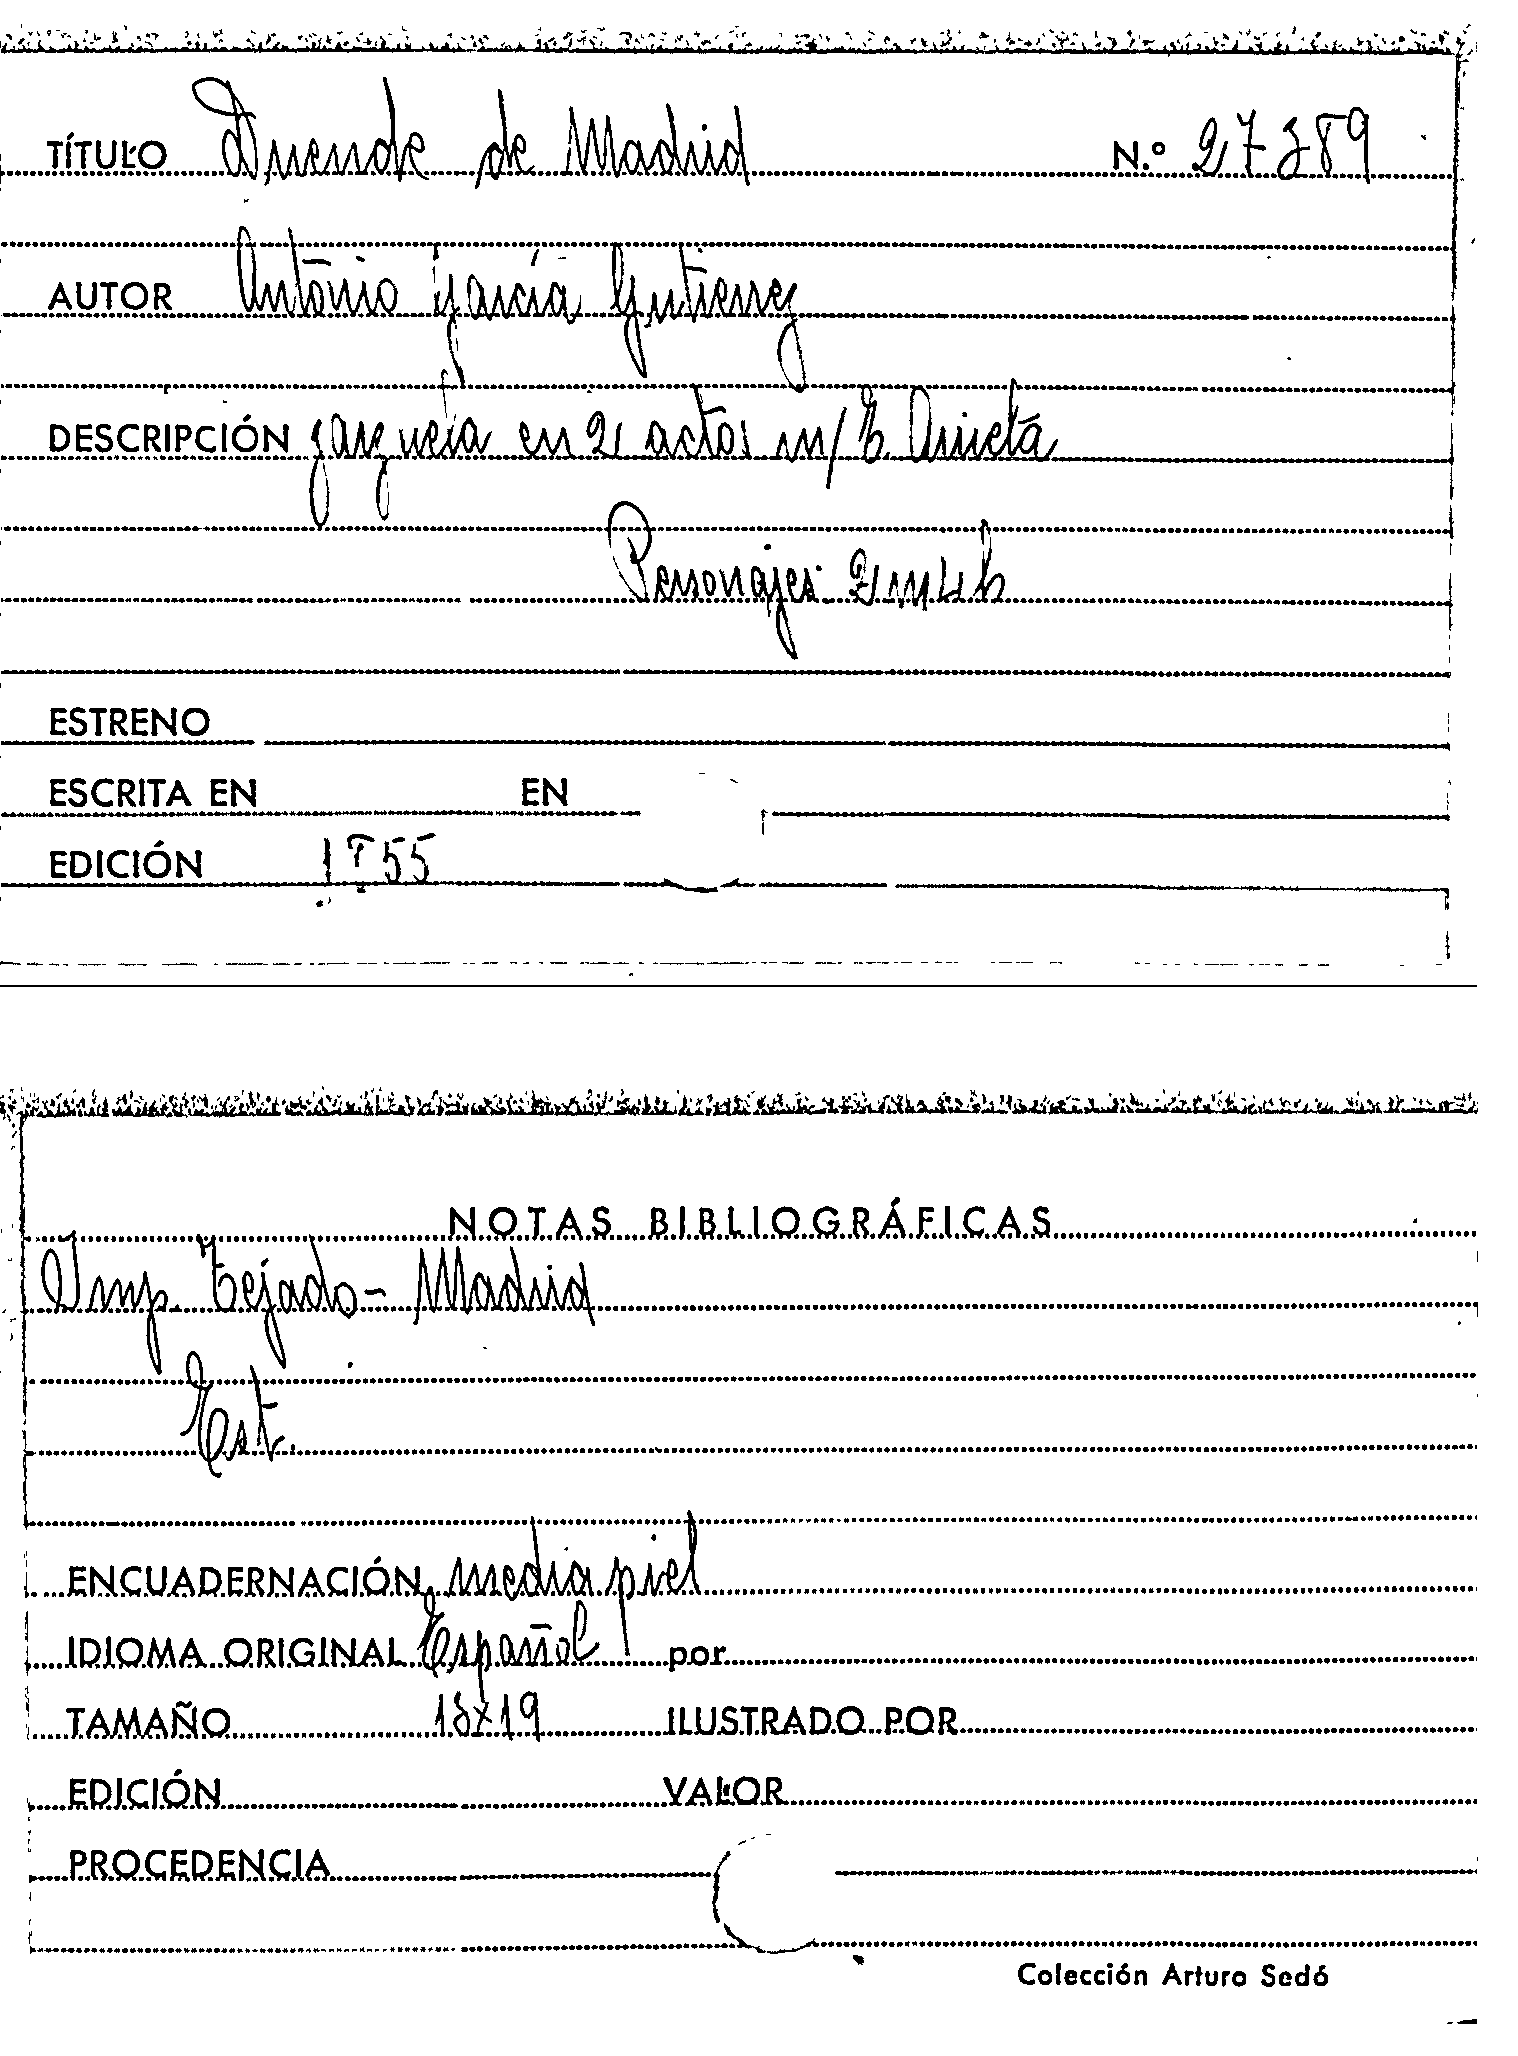 TÍTULO Duende de Madrid N.º 27389
AUTOR Antonio García Gutierrez
DESCRIPCIÓN zarzuela en 2 actos m/ E. Arrieta
Personajes: 2 m 4 h
ESTRENO
ESCRITA EN EN
EDICIÓN 1855
NOTAS BIBLIOGRÁFICAS
Imp. Tejado - Madrid
Est.
ENCUADERNACIÓN media piel
IDIOMA ORIGINAL Español por
TAMAÑO 13x19 ILUSTRADO POR
EDICIÓN VALOR
PROCEDENCIA
Colección Arturo Sedó